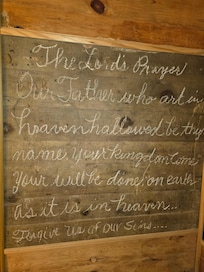 The Lord's Prayer
Our Father who art in
heaven hallowed be thy
name, your kingdom come
your will be done on earth
as it is in heaven...
Forgive us of our sins....